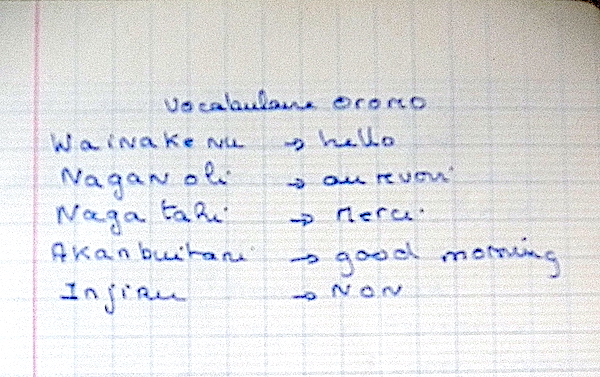 Vocabulaire oromo
Wainakenu → hello
Naganoli → au revoir
Naga tahi → Merci
Akanbuitani → good morning
Injiru → NON